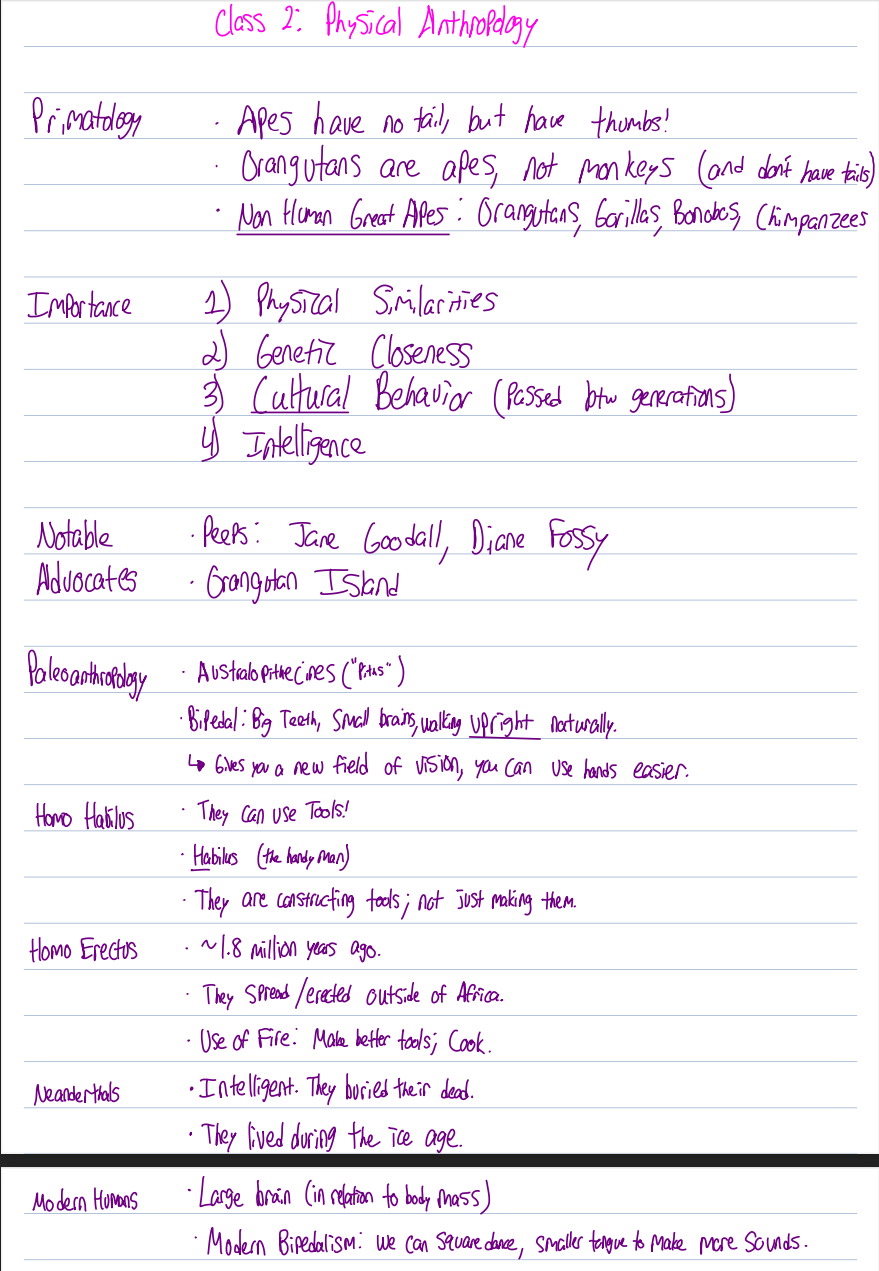 Class 2: Physical Anthropology
Primatology · Apes have no tail, but have thumbs!
· Orangutans are apes, not monkeys (and don't have tails)
· Non Human Great Apes: Orangutans, Gorillas, Bonobos, Chimpanzees
Importance 1) Physical Similarities
2) Genetic Closeness
3) Cultural Behavior (Passed btw generations)
4) Intelligence
Notable · Peeps: Jane Goodall, Diane Fossy
Advocates · Orangutan Island
Paleoanthropology · Australopithecines ("Piths")
· Bipedal: Big Teeth, Small brains, walking upright naturally.
↳ Gives you a new field of vision, you can use hands easier.
Homo Habilus · They can use Tools!
· Habilus (the handy man)
· They are constructing tools; not just making them.
Homo Erectus · ~1.8 million years ago.
· They Spread/erected outside of Africa.
· Use of Fire: Make better tools; Cook.
Neanderthals · Intelligent. They buried their dead.
· They lived during the ice age.
Modern Humans · Large brain (in relation to body mass)
· Modern Bipedalism: we can square dance, smaller tongue to make more sounds.